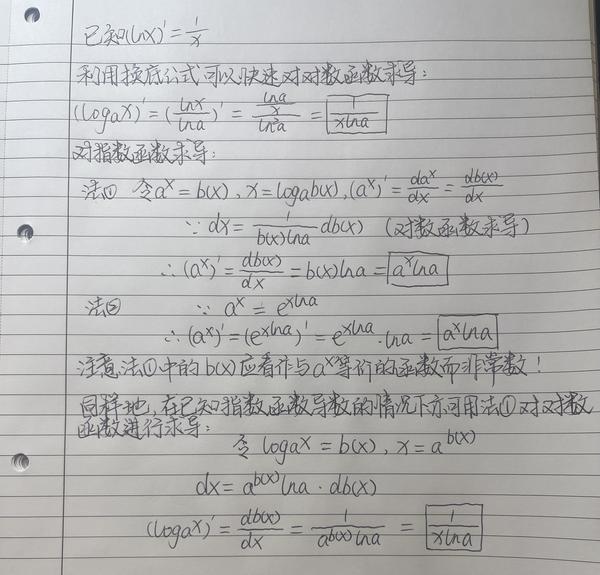 已知(lnx)′=1/x
利用换底公式可以快速对对数函数求导:
(logₐx)′=(lnx/lna)′=(lna/x)/ln²a=1/(xlna)
对指数函数求导:
法① 令aˣ=b(x), x=logₐb(x), (aˣ)′=daˣ/dx=db(x)/dx
∵ dx=1/(b(x)lna) db(x) (对数函数求导)
∴ (aˣ)′=db(x)/dx=b(x)lna=aˣlna
法② ∵ aˣ=e^(xlna)
∴ (aˣ)′=(e^(xlna))′=e^(xlna)·lna=aˣlna
注意法①中的b(x)应看作与aˣ等价的函数而非常数!
同样地,在已知指数函数导数的情况下亦可用法①对对数
函数进行求导:
令 logₐx=b(x), x=a^(b(x))
dx=a^(b(x))lna·db(x)
(logₐx)′=db(x)/dx=1/(a^(b(x))lna)=1/(xlna)